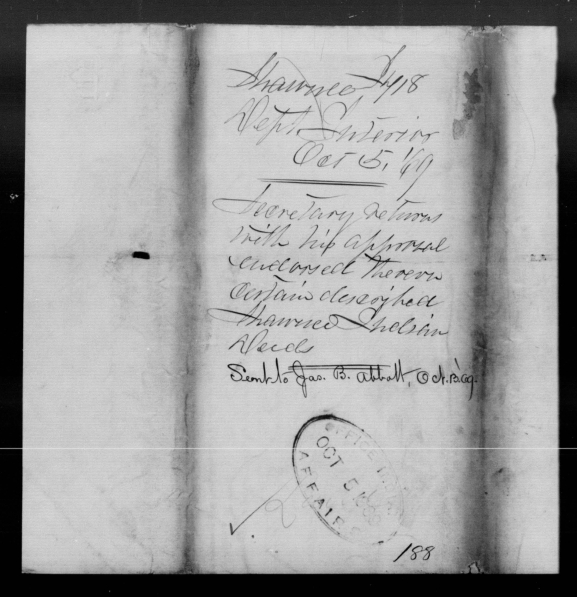 Shawnee I 418
Dept. Interior
Oct 5, '69
Secretary returns
with his approval
endorsed thereon
certain described
Shawnee Indian
Deeds
Sent to Jas. B. Abbott, Oct. 13 '69.
OFFICE
OCT 5 1869
AFFAIRS
188